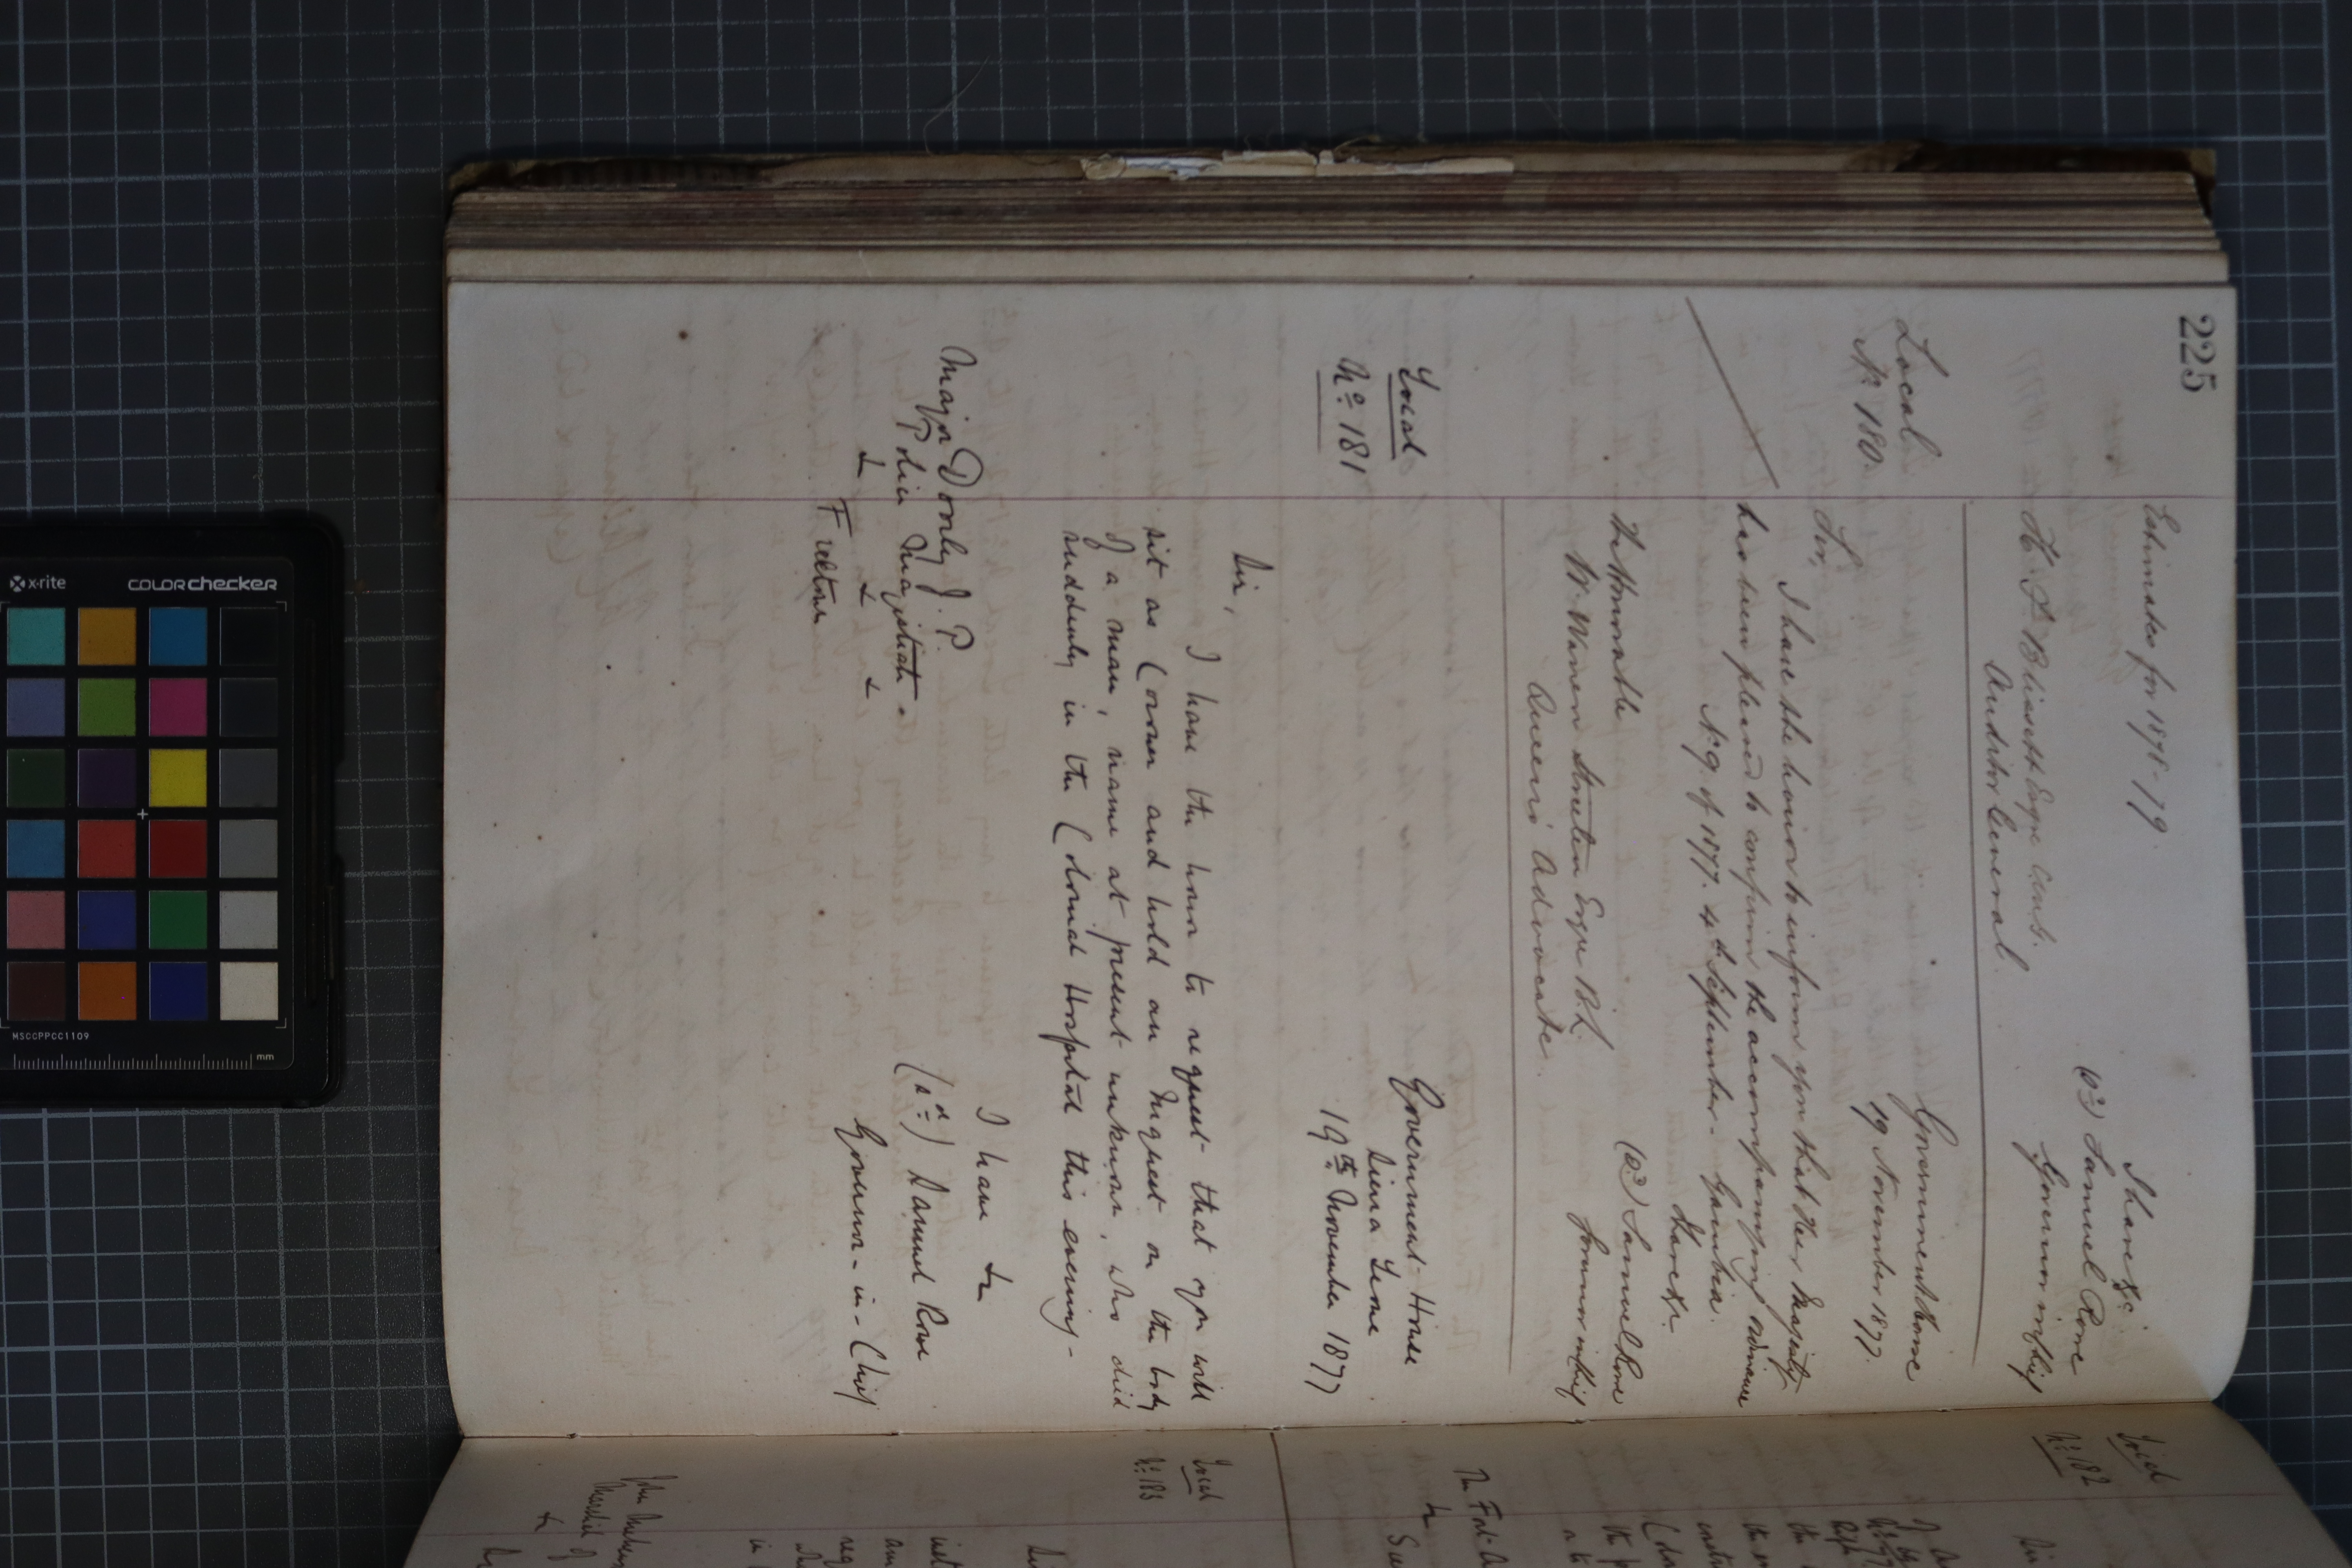 225
Estimates for 1878-79.
I have &c
(sd) Samuel Rowe
Governor in Chief
H. L. Blissett Esqre
Auditor General.
Local
No. 180.
Government House
19 November 1877.
Sir,
I have the honor to inform you that Her Majesty
has been pleased to confirm the accompanying ordinance
No. 9 of 1877. 4th September - Gambia.
I have &c.
(sd) Samuel Rowe
Governor in Chief
The Honorable
W. Warren Streeten Esqre B.L.
Queen's Advocate.
Local
No. 181
Government House
Sierra Leone
19th November 1877
Sir,
I have the honor to request that you will
sit as Coroner and hold an Inquest on the body
of a man, name at present unknown, who died
suddenly in the Colonial Hospital this evening -
I have &c
(sd) Samuel Rowe
Governor-in-Chief
Major Donly J. P.
Police Magistrate.
&c &c &c
Freetown
Local
No. 182
Local
No. 183
x·rite
COLORchecker
MSCCPPCC1109
mm